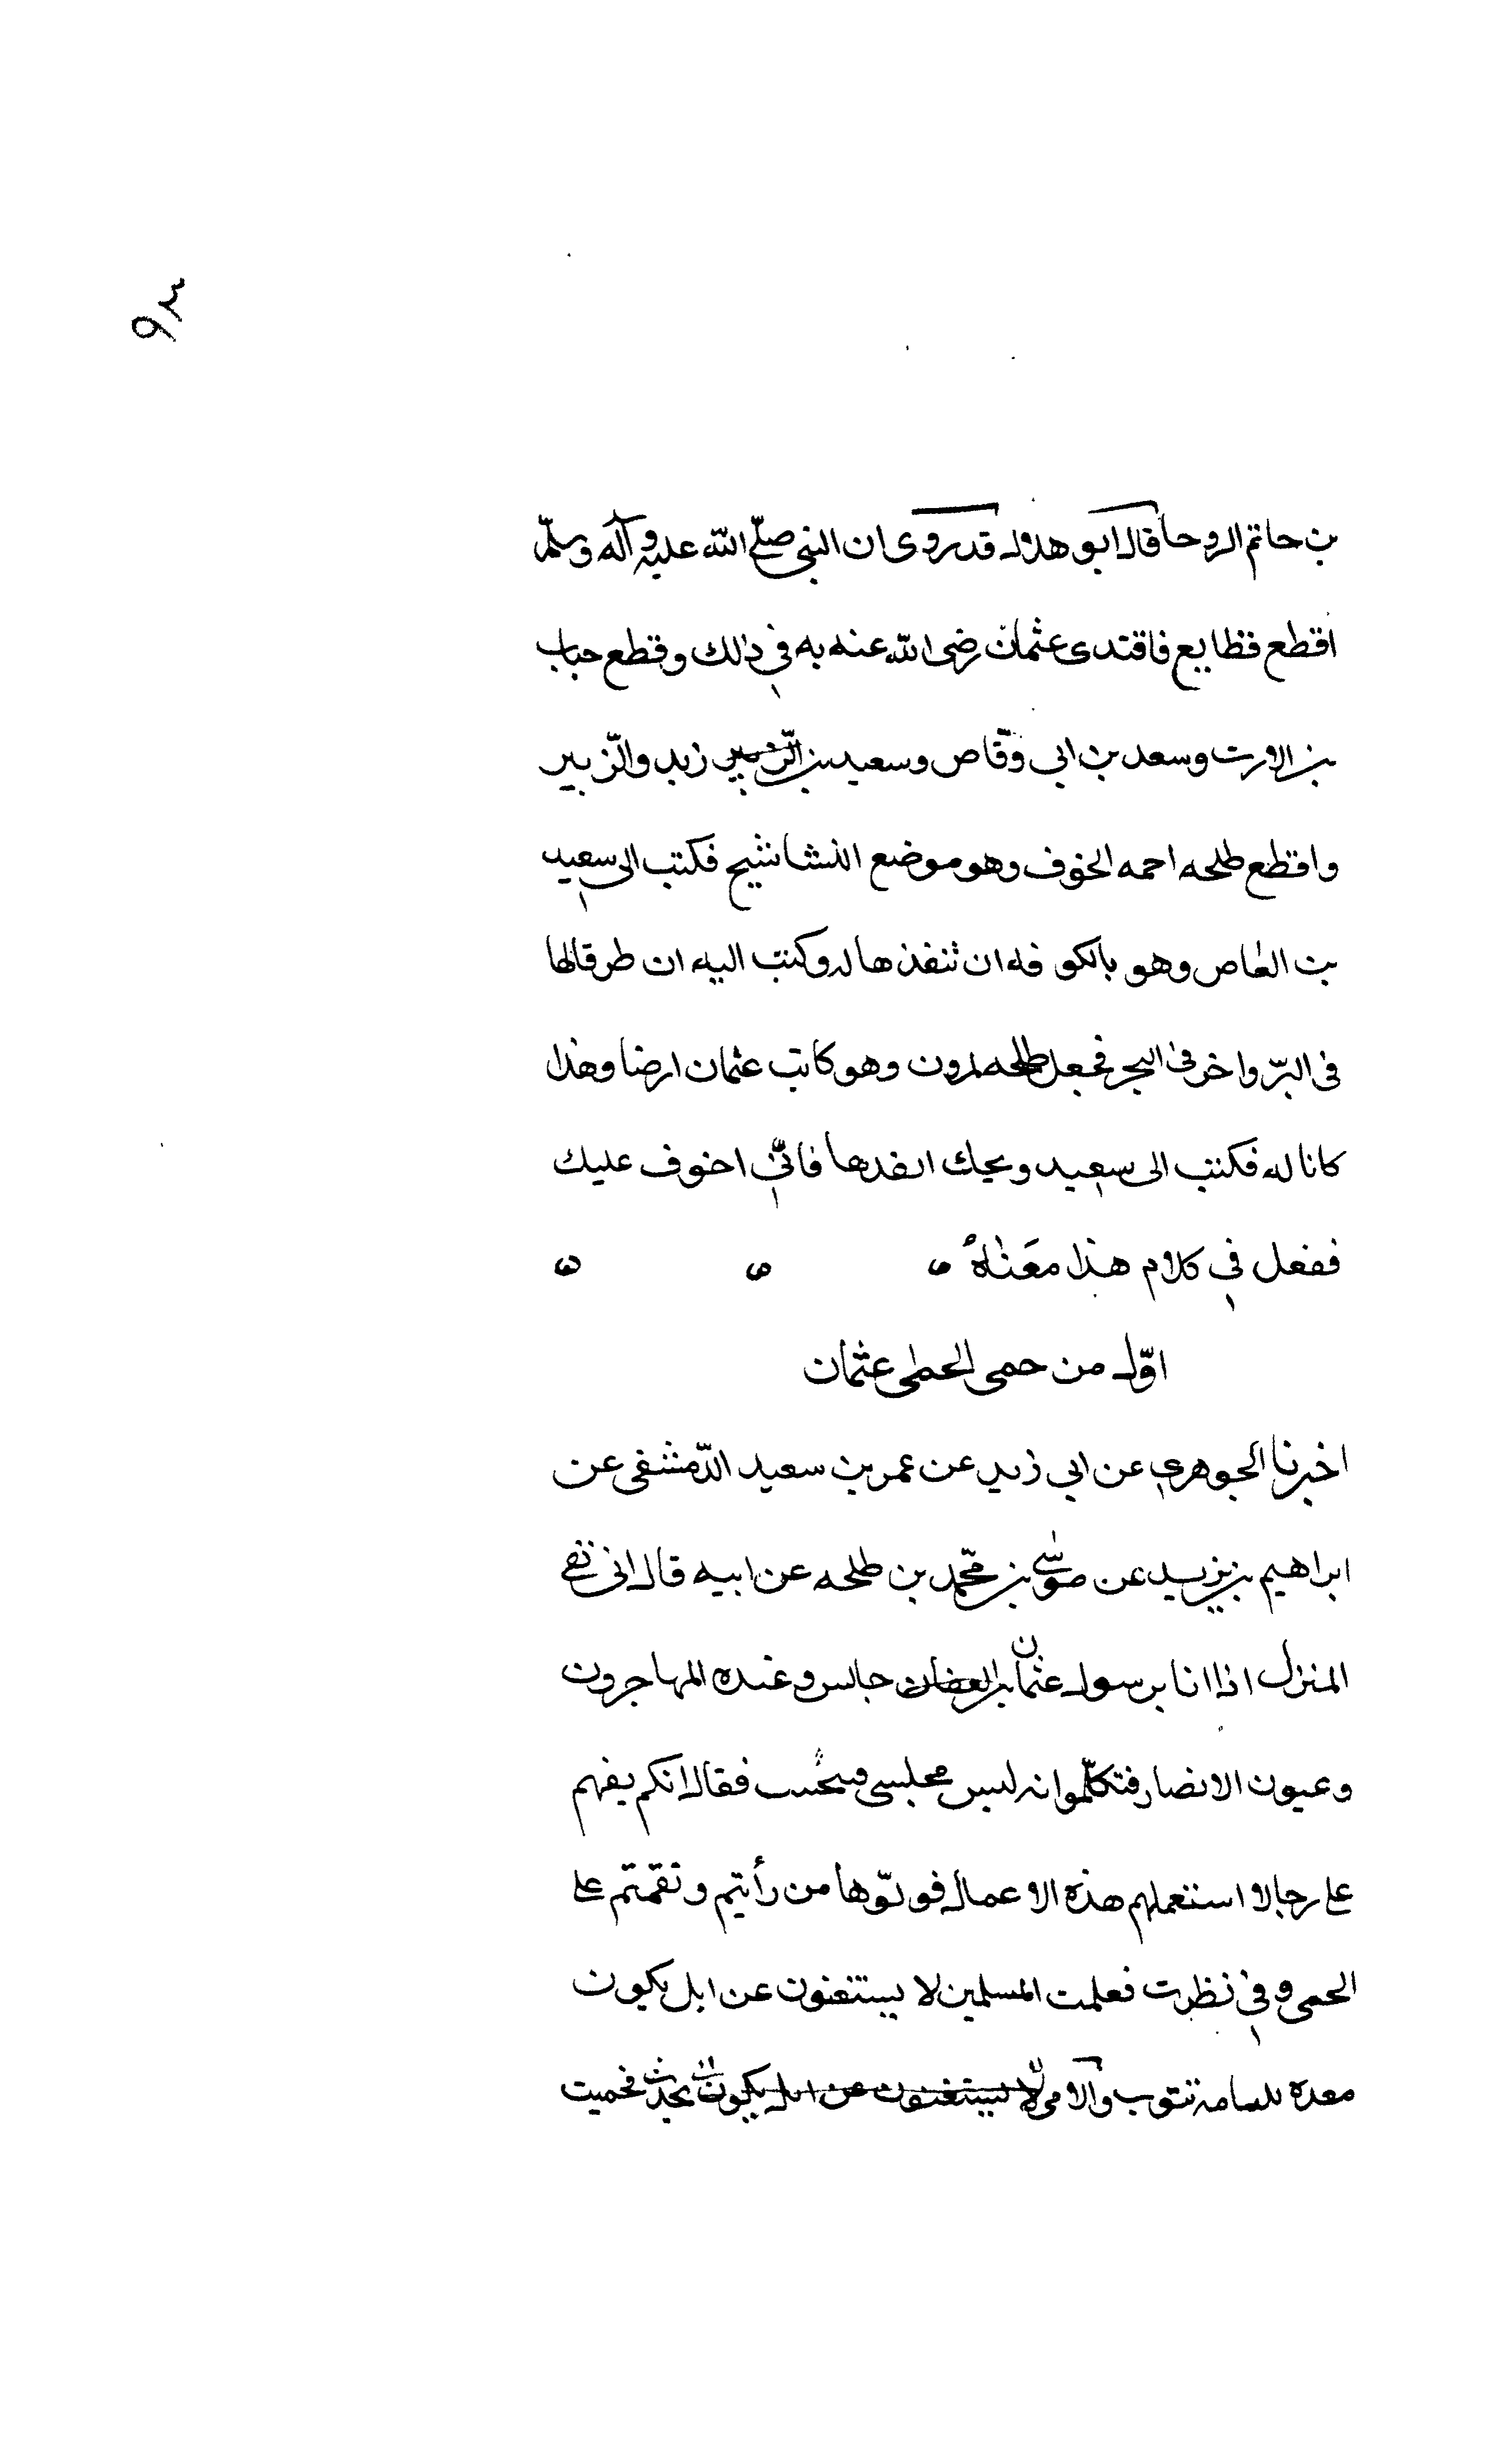 ٩٣
بن حاتم الروحا قال ابو هدوله قد روى ان النبى صلّى الله عليه وآله وسلّم
اقطع قظايع فاقتدى عثمان رضى الله عنه به في ذالك وقطع حباب
بن الارت وسعد بن ابى وقّاص وسعيد بن الزّبير زيد والزّبير
واقطع طلحه احمه الخوف وهو موضع النشا ستيح فكتب الى سعيد
بن العاص وهو بالكو فه ان تنفذها له وكتب اليه ان طرقالها
فى البرّ واخر فى البحر فجعل طلحه لمرون وهو كاتب عثمان ارضا وهذا
كانا له فكتب الى سعيد ويحك انفدها فانّى اخوف عليك
ففعل في كلام هذا معناهُ
اوّل من حمى الحمى عثمان
اخبرنا الجوهري عن ابى زيد عن عمر بن سعيد الدّمشقى عن
ابراهيم بن يزيد عن موسى بن محمّد بن طلحه عن ابيه قال انى لفى
المنزل اذا انا برسول عثمان بن العفان جالس وعنده المهاجرون
وعيون الانصار فتكلّموا انه ليس مجلسى فقال انكم يفهم
على رجالا استعملهم هذه الاعمال فولّوها من رأيتم ونقمتم على
الحمى و في نظرت فعلمت المسلمين لا يستغنون عن ابل يكون
معده للعامه تنوب والامر لا يستغنون عن ابل يكون يحدث فحميت